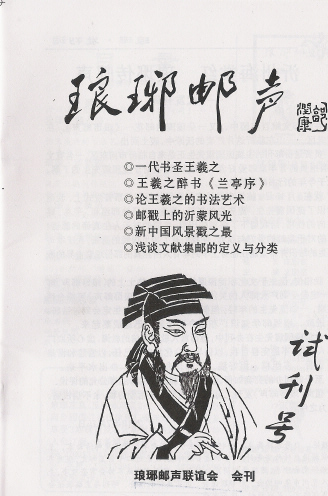 琅琊邮声
◎一代书圣王羲之
◎王羲之醉书《兰亭序》
◎论王羲之的书法艺术
◎邮戳上的沂蒙风光
◎新中国风景戳之最
◎浅谈文献集邮的定义与分类
试刊号
琅琊邮声联谊会 会刊